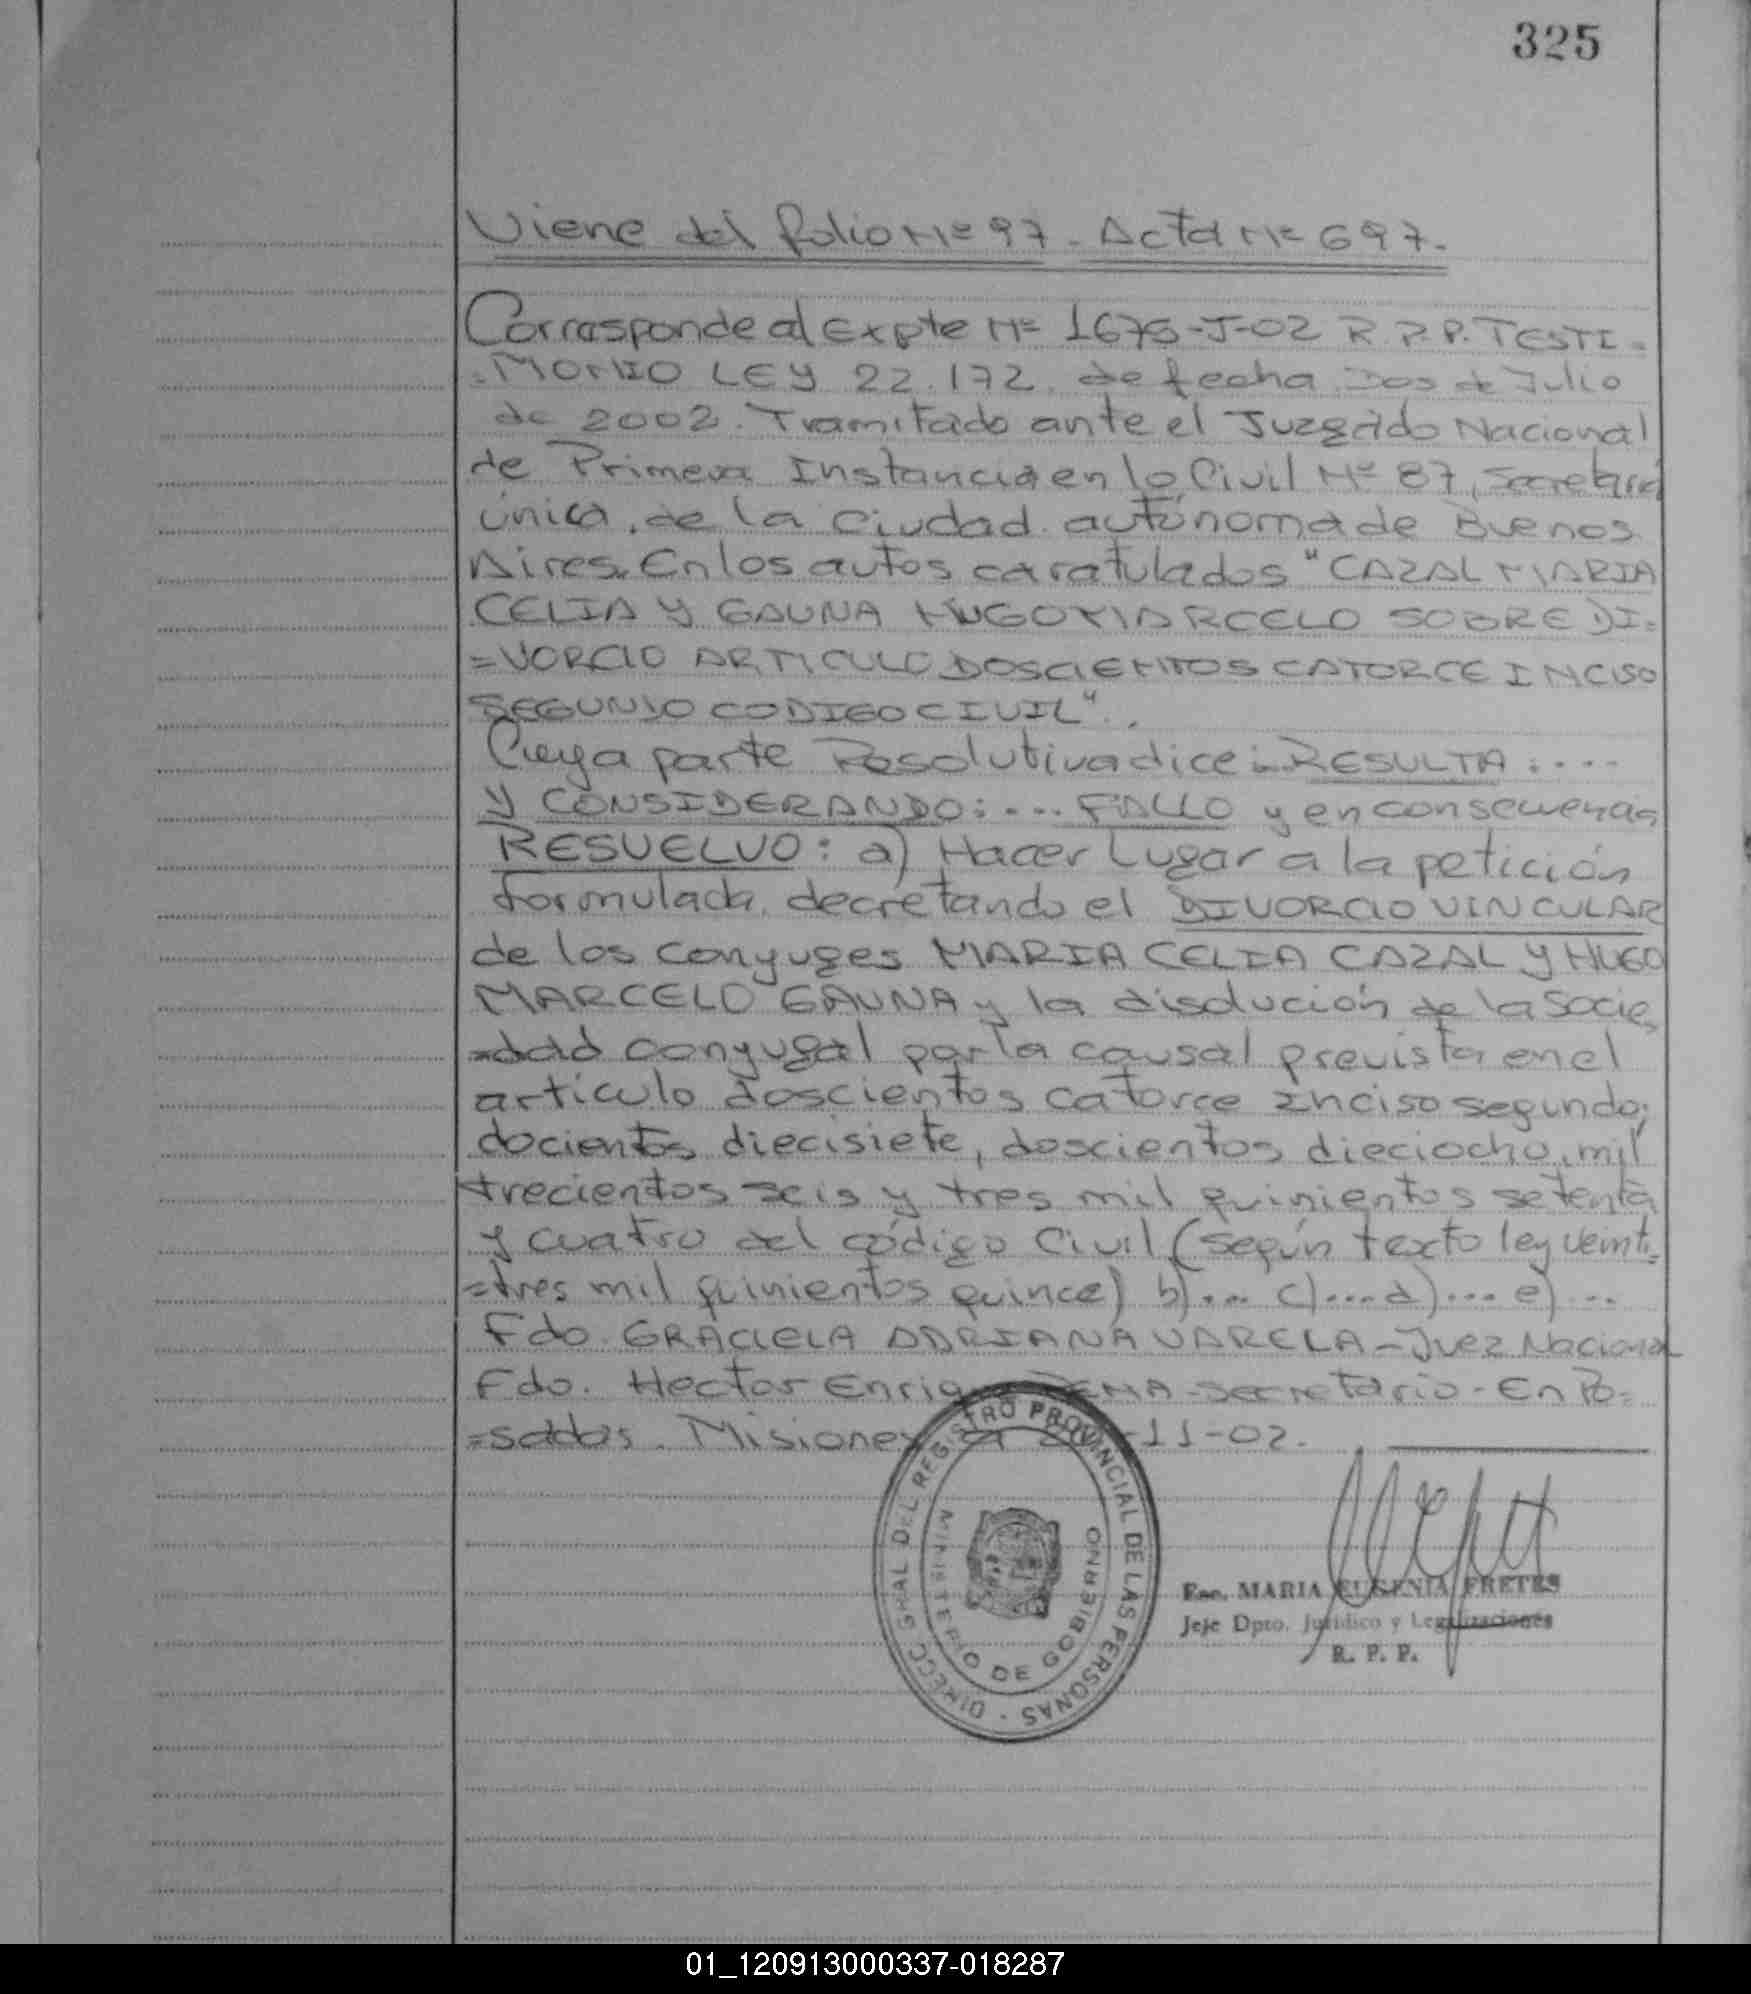 325
Viene del folio Nº 97. Acta Nº 697.
Corresponde al Expte Nº 1675-J-02 R.P.P. TESTI=
=MONIO LEY 22.172. de fecha Dos de Julio
de 2002. Tramitado ante el Juzgado Nacional
de Primera Instancia en lo Civil Nº 87, Secretaría
única, de la Ciudad autónoma de Buenos
Aires. En los autos caratulados "CAZAL MARIA
CELIA Y GAUNA HUGO MARCELO SOBRE DI=
=VORCIO ARTICULO DOSCIENTOS CATORCE INCISO
SEGUNDO CODIGO CIVIL".
Cuya parte Resolutiva dice: RESULTA: ....
Y CONSIDERANDO: ... FALLO y en consecuencia,
RESUELVO: a) Hacer Lugar a la petición
formulada, decretando el DIVORCIO VINCULAR
de los conyuges MARIA CELIA CAZAL Y HUGO
MARCELO GAUNA y la disolución de la Socie=
=dad conyugal por la causal prevista en el
artículo doscientos catorce inciso segundo;
docientos diecisiete, doscientos dieciocho, mil
trecientos seis y tres mil quinientos setenta
y cuatro del código Civil (según texto ley veinti=
=tres mil quinientos quince) b)... c)....d)....e)...
Fdo. GRACIELA ADRIANA VARELA - Juez Nacional
Fdo. Hector Enrique - Secretario - En Po=
=sadas. Misiones -11-02.
DIRECC GRAL DEL REGISTRO PROVINCIAL DE LAS PERSONAS ·
MINISTERIO DE GOBIERNO
Esc. MARIA EUGENIA FRETES
Jefe Dpto. Jurídico y Legalizaciones
R. P. P.
01_120913000337-018287